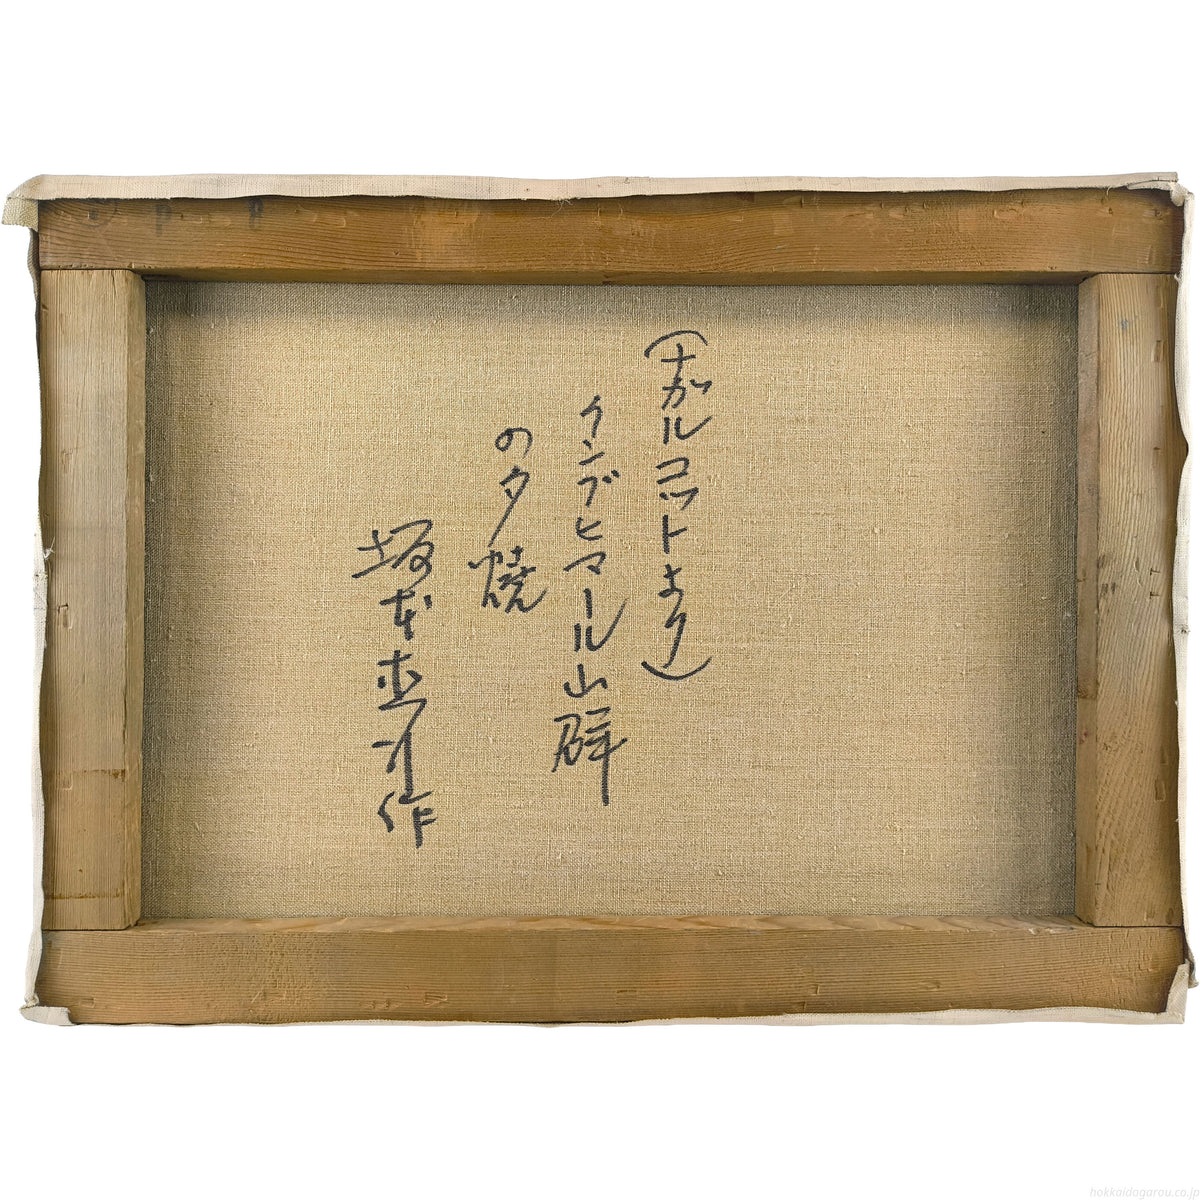 (ナガルコットより)
クンブヒマール山群
の夕焼
坂本直行作
hokkaidogarou.co.jp